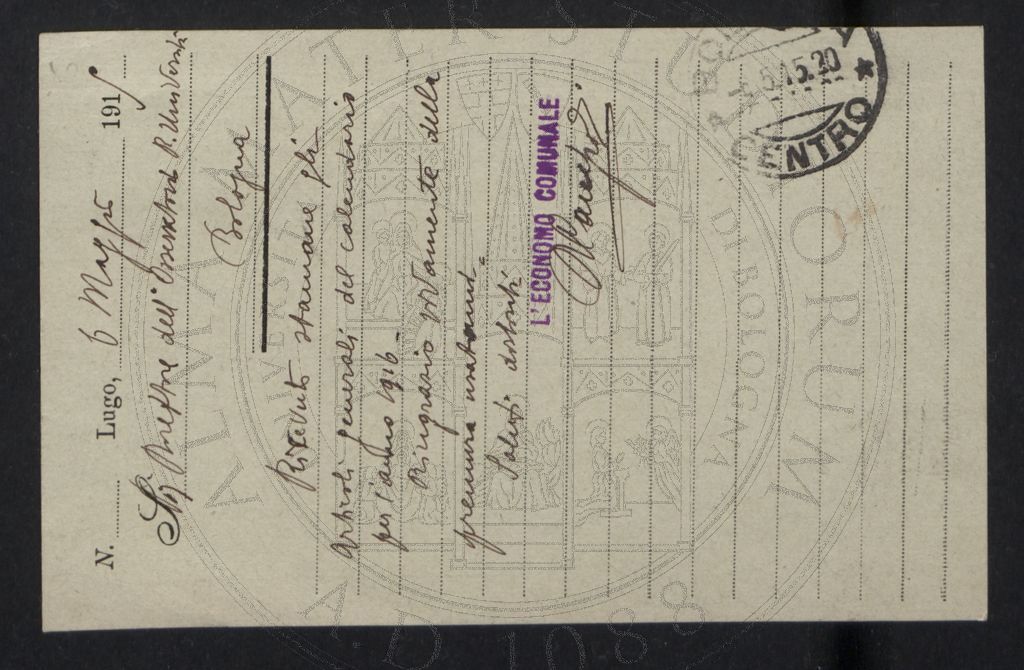 N. Lugo, 6 Maggio 1915
Sig. Direttore dell'Osservatorio R. Università
Bologna
Ricevuto stamane gli
articoli generali del calendario
per l'anno 1916 -
Ringrazio vivamente della
premura usatami -
Saluti distinti
L'ECONOMO COMUNALE
5.15.20
CENTRO *
ALMA MATER STUDIORUM
UNIVERSITÀ DI BOLOGNA
A.D. 1088